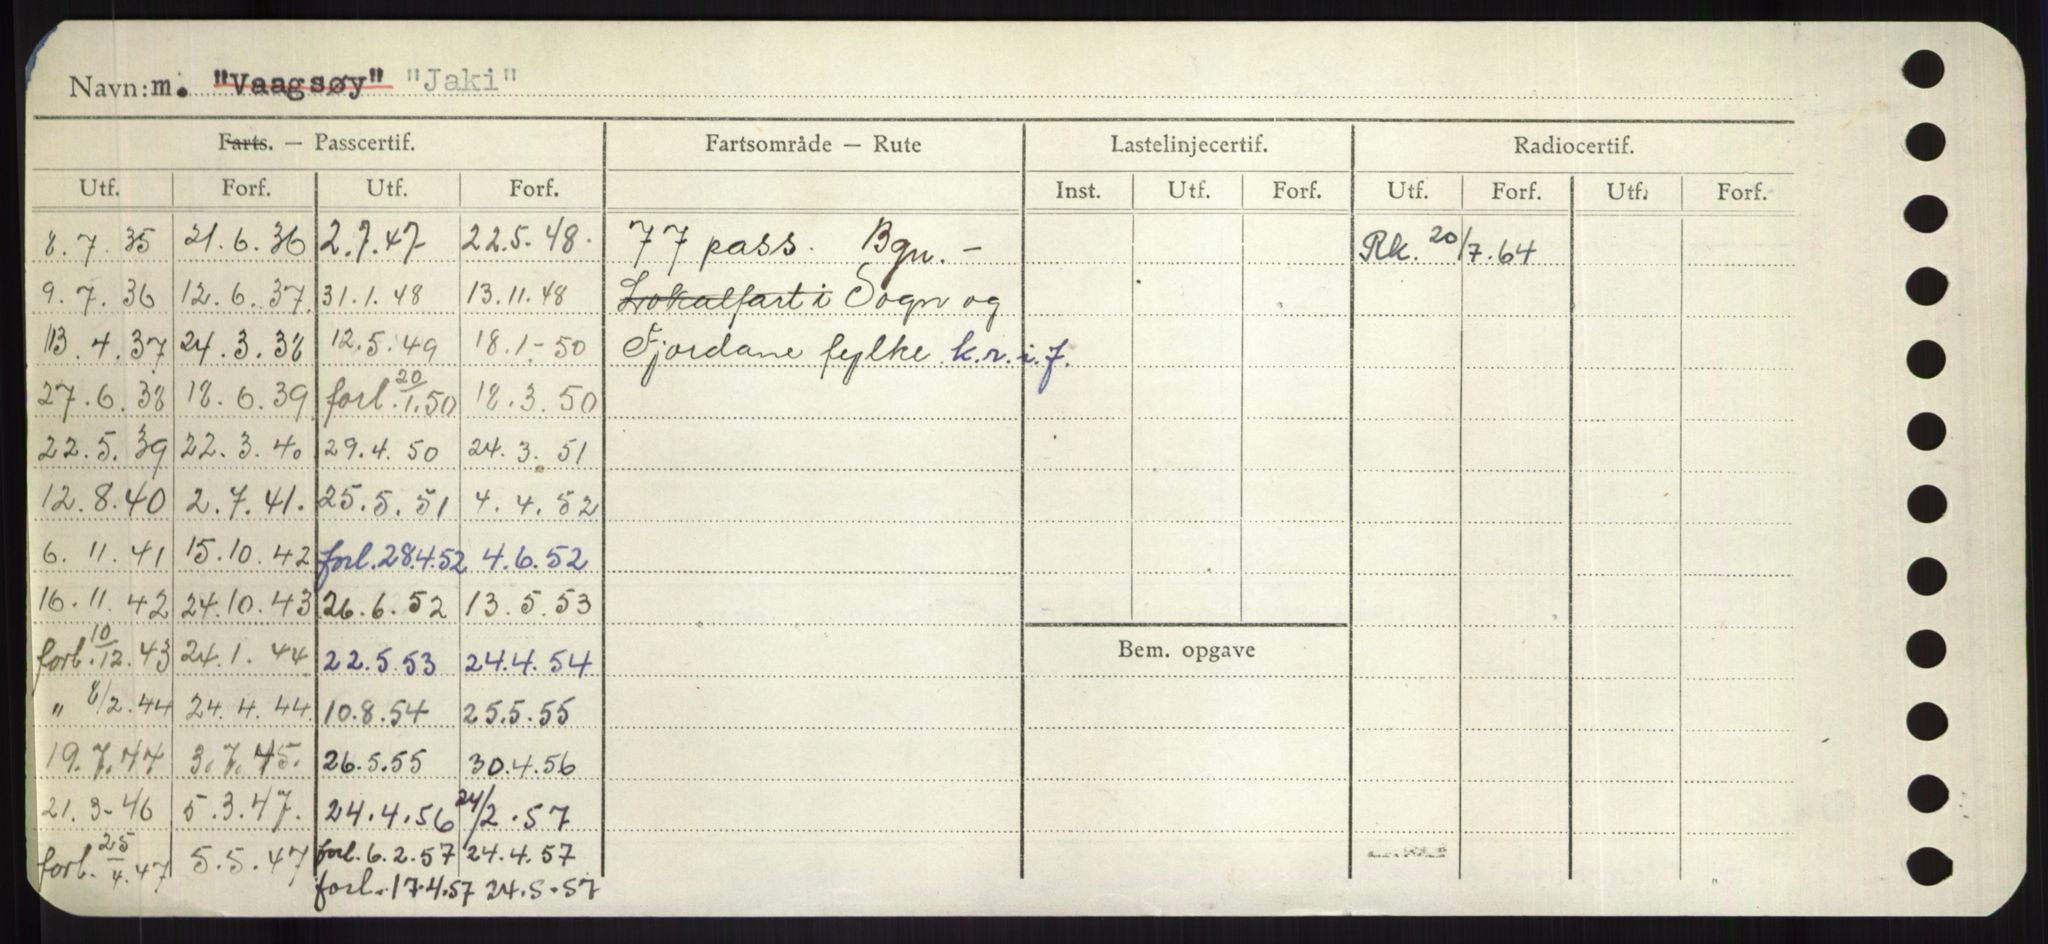 Navn: m. "Vaagsøy" "Jaki"
Farts. — Passcertif. Fartsområde — Rute Lastelinjecertif. Radiocertif.
Utf. Forf. Utf. Forf. Inst. Utf. Forf. Utf. Forf. Utf. Forf.
8.7.35 21.6.36 2.7.47 22.5.48. 77 pass. Bgn. — Rk. 20/7.64
9.7.36 12.6.37. 31.1.48 13.11.48 Lokalfart i Sogn og
13.4.37 24.3.38 12.5.49 18.1-50 Fjordane fylke k.r.i.f.
27.6.38 18.6.39 forl. 20/1.50 18.3.50
22.5.39 22.3.40 29.4.50 24.3.51
12.8.40 2.7.41. 25.5.51 4.4.52
6.11.41 15.10.42 forl. 28.4.52 4.6.52
16.11.42 24.10.43 26.6.52 13.5.53
forl. 10/12.43 24.1.44 22.5.53 24.4.54 Bem. opgave
" 8/2.44 24.4.44 10.8.54 25.5.55
19.7.44 3.7.45. 26.5.55 30.4.56
21.3-46 5.3.47. 24.4.56 24/2.57
forl. 25/4.47 5.5.47 forl. 6.2.57 24.4.57
forl. 17.4.57 24.5.57